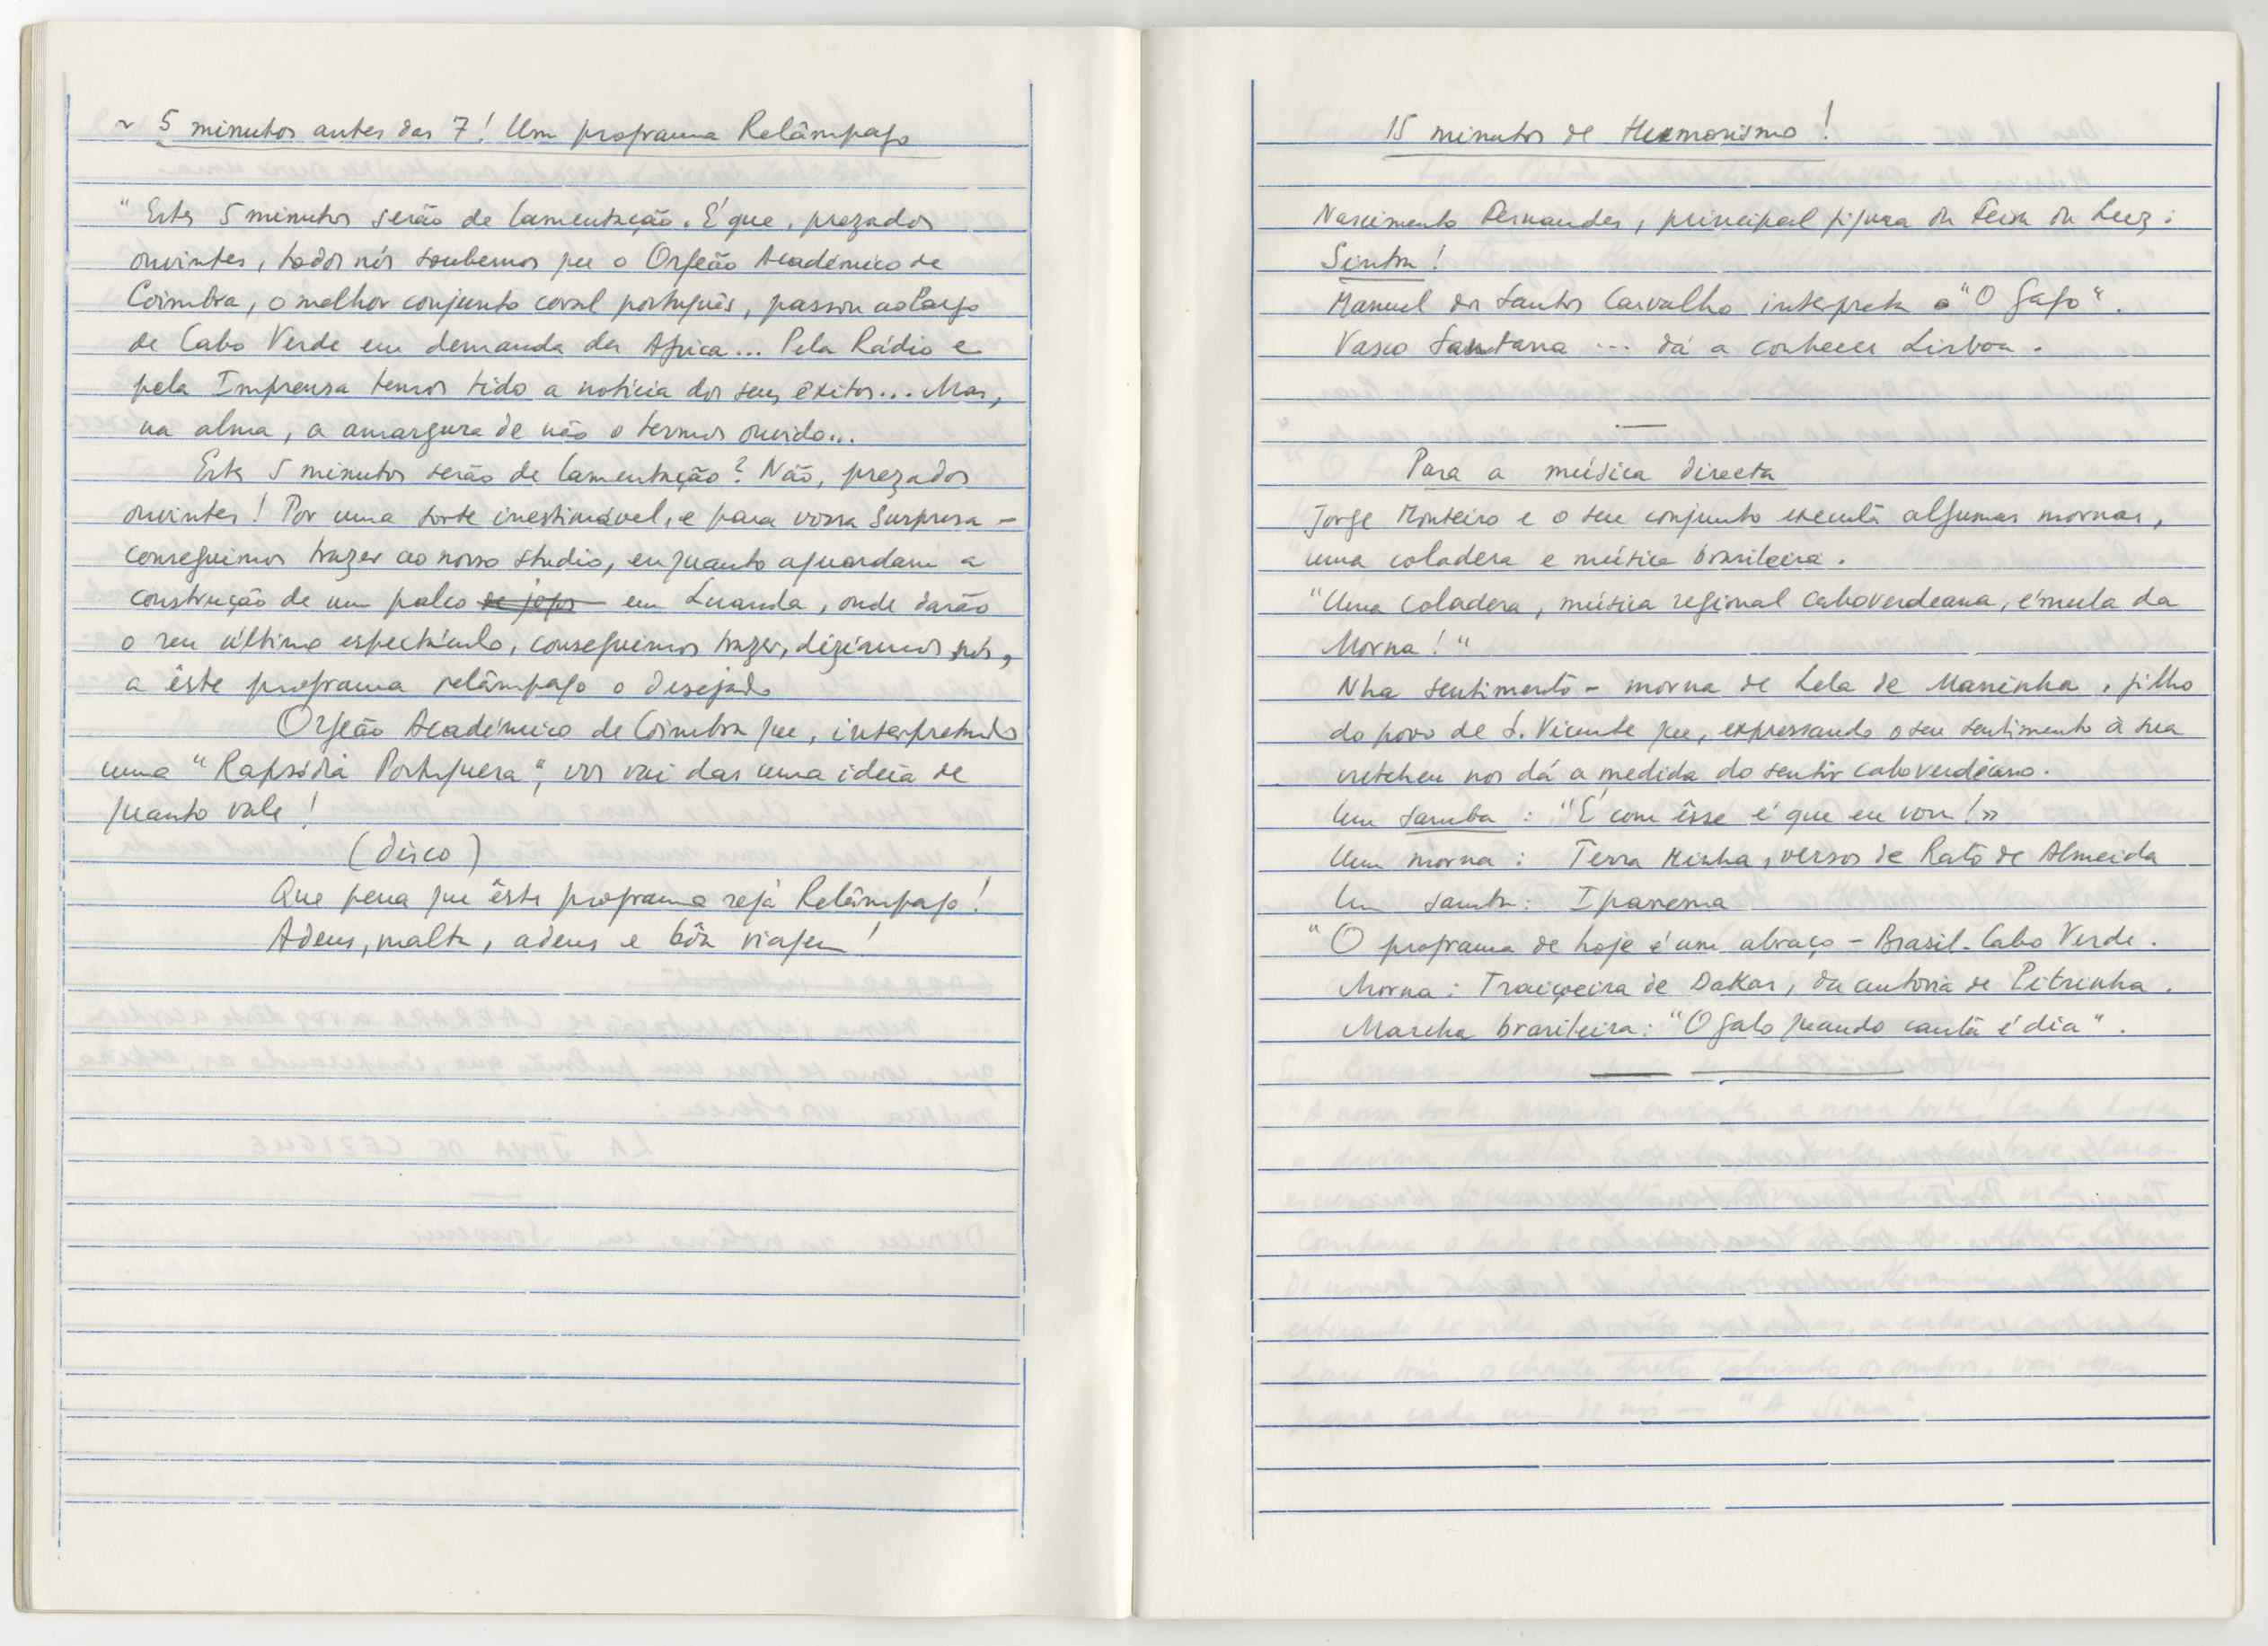 ~ 5 minutos antes das 7! Um programa Relâmpago
"Estes 5 minutos serão de lamentação. É que, prezados
ouvintes, todos nós soubemos que o Orfeão Académico de
Coimbra, o melhor conjunto coral português, passou ao largo
de Cabo Verde em demanda da Africa... Pela Rádio e
pela Imprensa temos tido a notícia dos seus êxitos... Mas,
na alma, a amargura de não o termos ouvido...
Estes 5 minutos serão de lamentação? Não, prezados
ouvintes! Por uma sorte inestimável, e para vossa surpresa -
conseguimos trazer ao nosso studio, enquanto aguardam a
construção de um palco de jogos em Luanda, onde darão
o seu último espectáculo, conseguimos trazer, dizíamos nós,
a êste programa relâmpago o desejado
Orfeão Académico de Coimbra que, interpretando
uma "Rapsódia Portuguesa", vos vai dar uma ideia de
quanto vale!
(disco)
Que pena que êste programa seja Relâmpago!
Adeus, malta, adeus e bôa viagem!
15 minutos de Humorismo!
Nascimento Fernandes, principal figura da Feira da Luz:
Sintra!
Manuel dos Santos Carvalho interpreta o "O Gago".
Vasco Santana ... dá a conhecer Lisboa.
Para a música directa
Jorge Monteiro e o seu conjunto executa algumas mornas,
uma coladera e música brasileira.
"Uma coladera, música regional caboverdeana, émula da
Morna!"
Nha sentimento - morna de Lela de Maninha, filho
do povo de S. Vicente que, expressando o seu sentimento à sua
cretcheu nos dá a medida do sentir caboverdeano.
Um samba: "É com êsse é que eu vou!»
Um morna: Terra Minha, versos de Rato de Almeida
Um samba: Ipanema
"O programa de hoje é um abraço - Brasil-Cabo Verde.
Morna: Traiçoeira de Dakar, da autoria de Pitrinha.
Marcha brasileira: "O galo quando canta é dia".